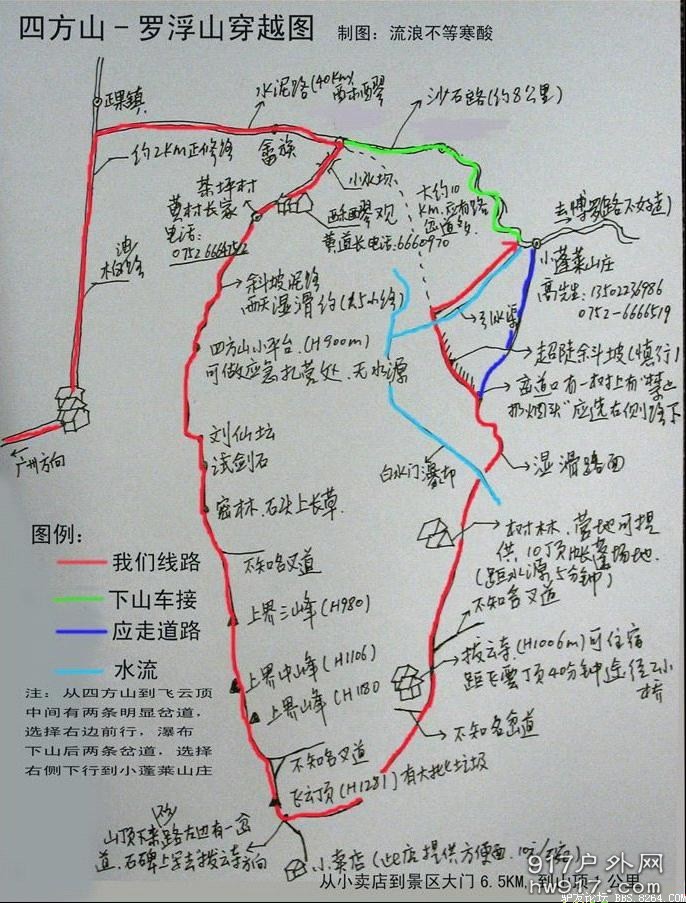 四方山-罗浮山穿越图 制图：流浪不等寒酸
正果镇
水泥路(40Km)
沙石路(约8公里)
约2Km正修路
畲族
小水坝
菜坪村
黄村长家
电话：
0752
酥醪观
黄道长电话:6660970
大约10
Km.应有路
去博罗路不好走)
小蓬莱山庄
高先生: 13502236986
0752-6666519
引水渠
油
柏路
斜坡泥路
雨天湿滑约
四方山小平台.(H900m)
可做应急扎营处.无水源
超陡斜坡(慎行)
岔道口有一树上有"禁止
扔烟头"应选右侧路下
刘仙坛
试剑石
广州方向
白水门瀑布
湿滑路面
密林.石头上长草.
树林.营地可提
供10顶帐蓬场地.
(距水源5分钟)
图例:
我们线路
下山车接
应走道路
水流
不知名叉道
不知名叉道
上界三峰(H980)
上界中峰(H1106)
上界山峰(H1180
拨云寺.(H1006m)可住宿
距飞雲顶40分钟途径2小
桥
注：从四方山到飞云顶
中间有两条明显岔道，
选择右边前行，瀑布
下山后两条岔道，选择
右侧下行到小蓬莱山庄
不知名岔道
不知名叉道
飞云顶(H1281)有大批垃圾
山顶下来路左边有一岔
道.石碑上写去拨云寺方向
小卖店(此店提供方便面.10元/
从小卖店到景区大门 6.5KM,到山顶1公里
917户外网
hw917.com
驴友论坛 BBS.8264.COM